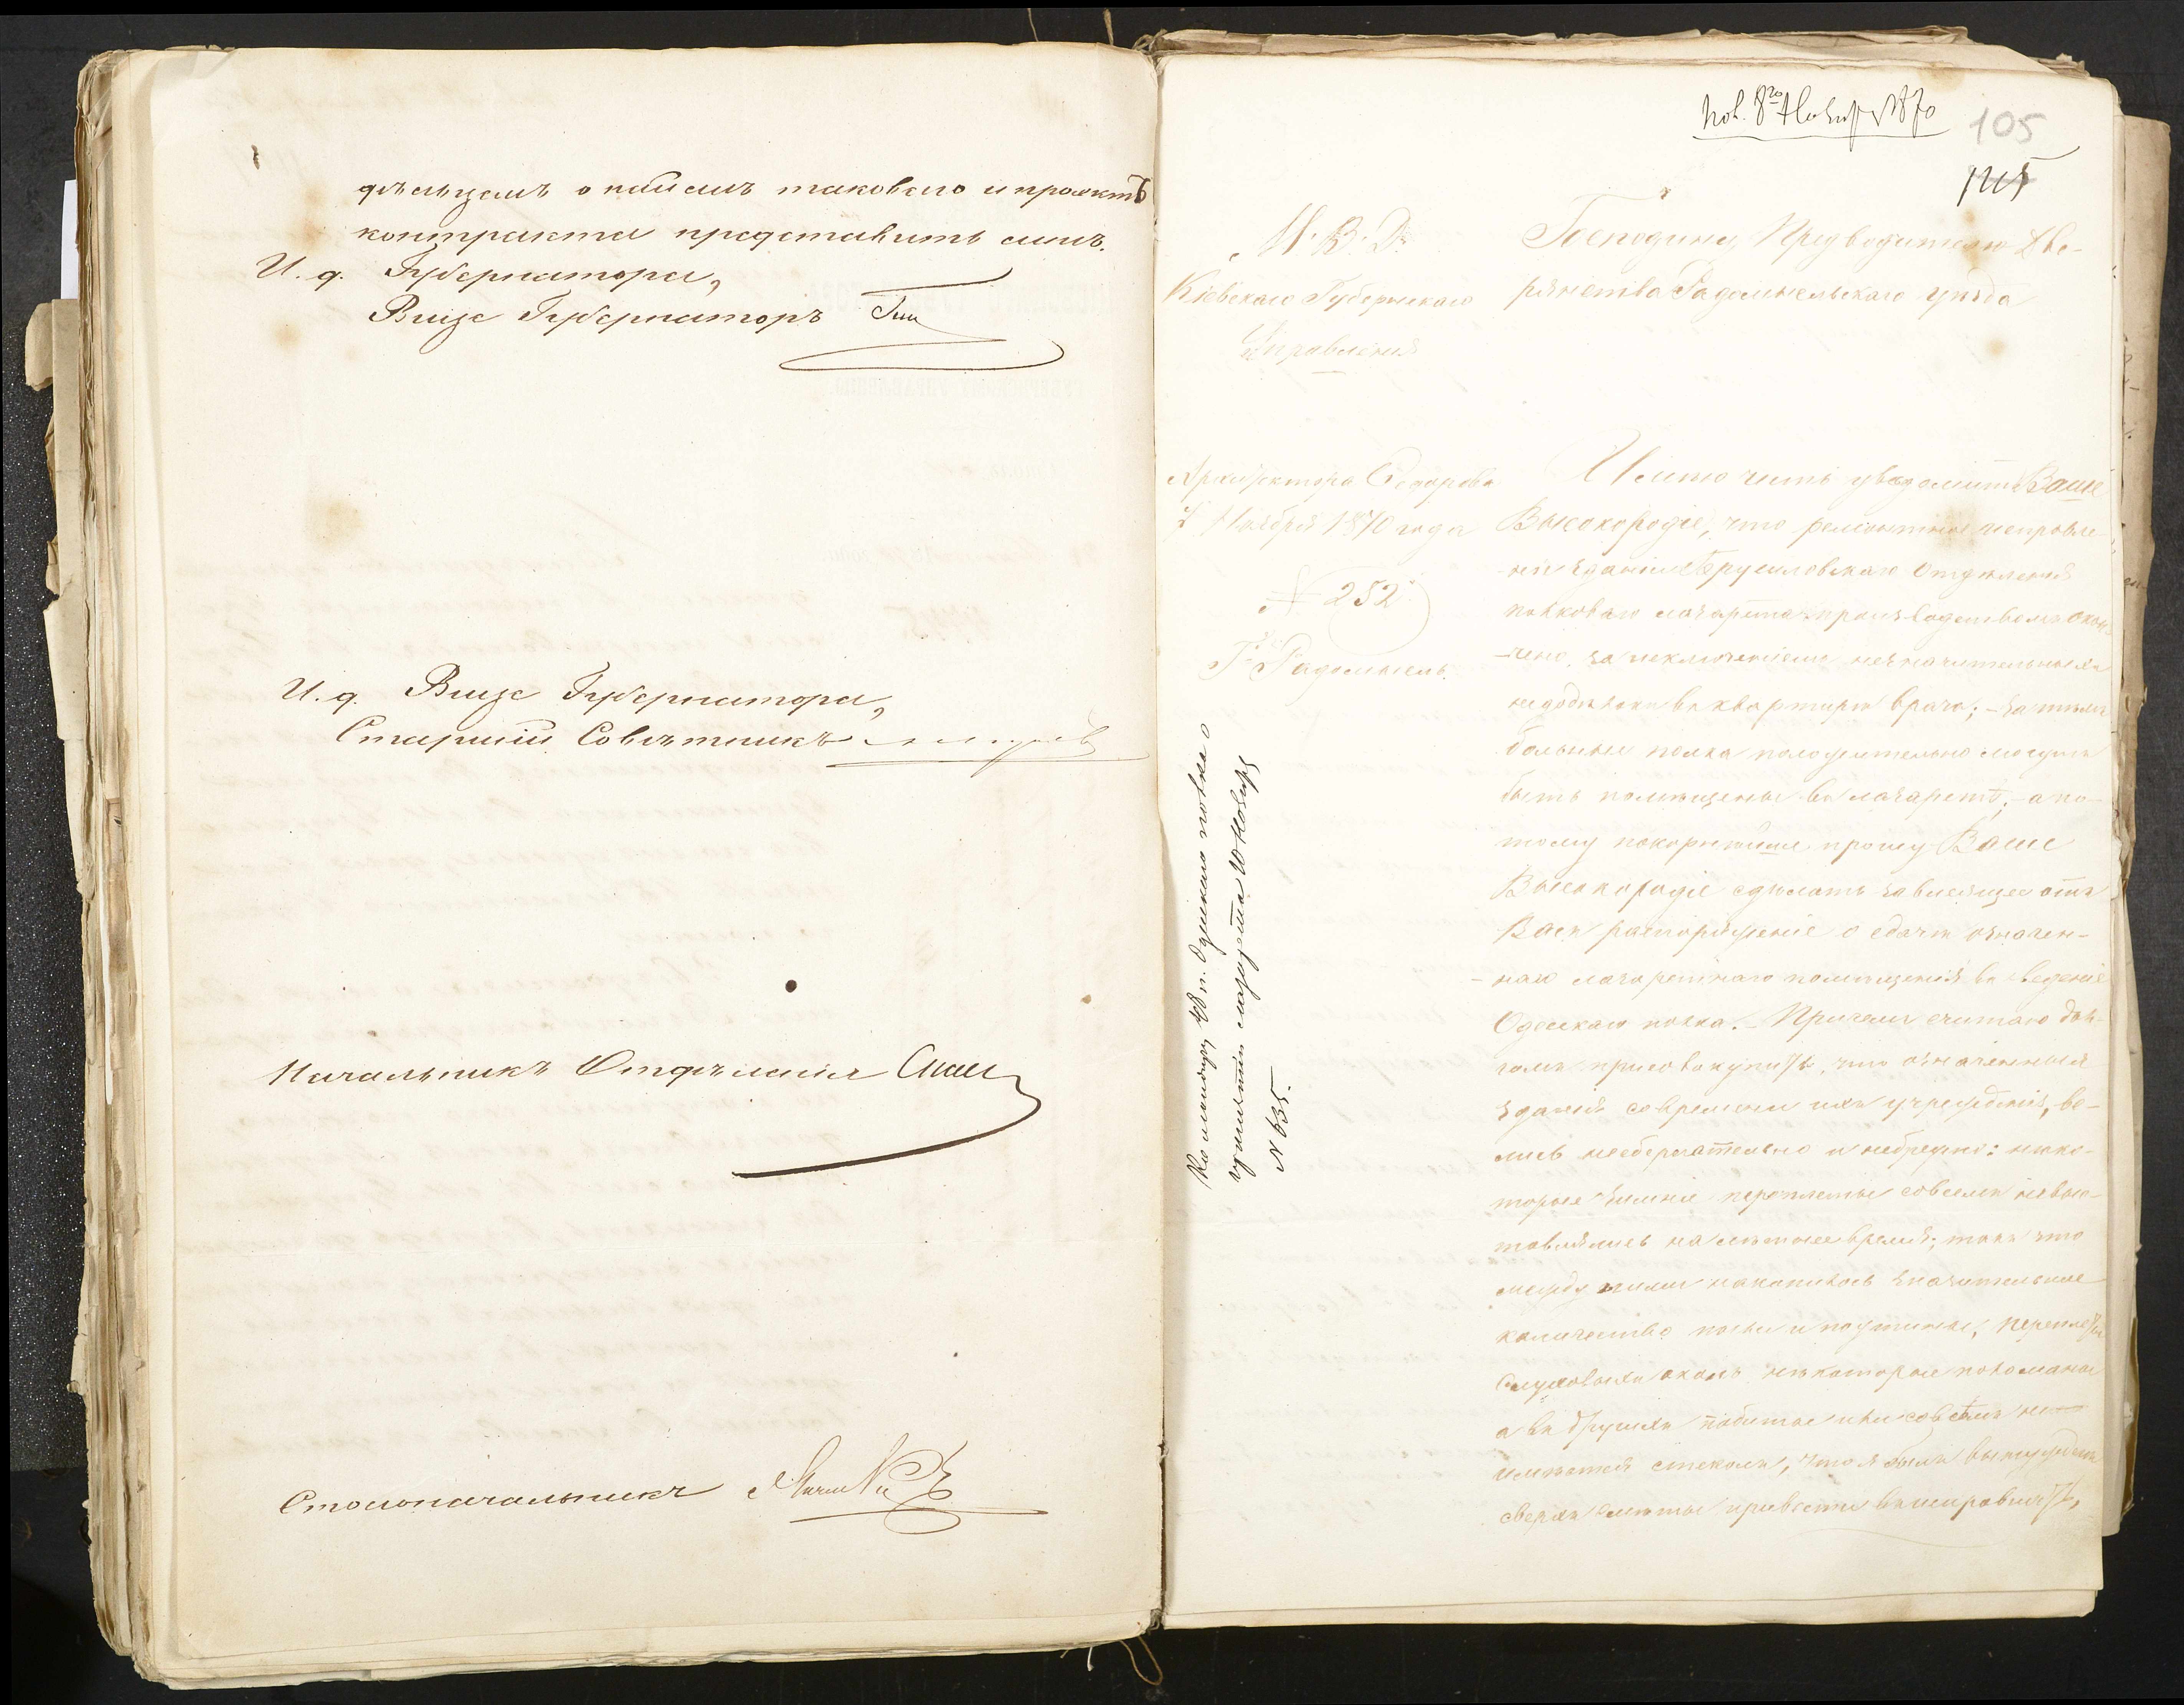 дѣльцемъ о наймѣ таковаго и проэктъ
контракта представить мнѣ.
И. д. Губернатора,
Вице Губернаторъ
И. д. Вице Губернатора,
Старшій Совѣтникъ
Начальникъ Отдѣленія
Столоначальникъ
Пол. 8го Ноября 1870
105
М. В. Д.
Кіевскаго Губернскаго
Управленія
Архитектора Ѳедорова
7 Ноября 1870 года
N 252
Г. Радомысль.
Командиру 48 п. Одескаго полка о
лазарета 10 Ноября
N 635.
Господину Предводителю Дво-
рянства Радомысльскаго уѣзда
Имѣю честь увѣдомить Ваше
Высокородіе, что ремонтное исправле-
ніе зданія Брусиловскаго Отдѣленія
полковаго лазарета производствомъ окон-
чено, за исключеніемъ незначительныхъ
недодѣлокъ въ квартирѣ врача; – затѣмъ
больные полка положительно могутъ
быть помѣщены въ лазаретѣ, – а по-
тому покорнѣйше прошу Ваше
Высокородіе сдѣлать зависящее отъ
Васъ распоряженіе о сдачѣ означен-
наго лазаретнаго помѣщенія въ веденіе
Одесскаго полка. – Причемъ считаю дол-
гомъ присовокупить, что означенныя
зданія со времени ихъ учрежденія, ве-
лись небрежно: нѣко-
торые зимніе переплеты совсемъ не выс-
тавлялись на лѣтнее время; такъ что
между ними накопилось значительное
количество пыли и паутины, переплеты
слуховыхъ оконъ нѣкоторые поломаны
а въ другихъ побитые или совсѣмъ не
имѣется стеколъ, что я былъ вынужденъ
сверхъ смѣты привести въ исправность,